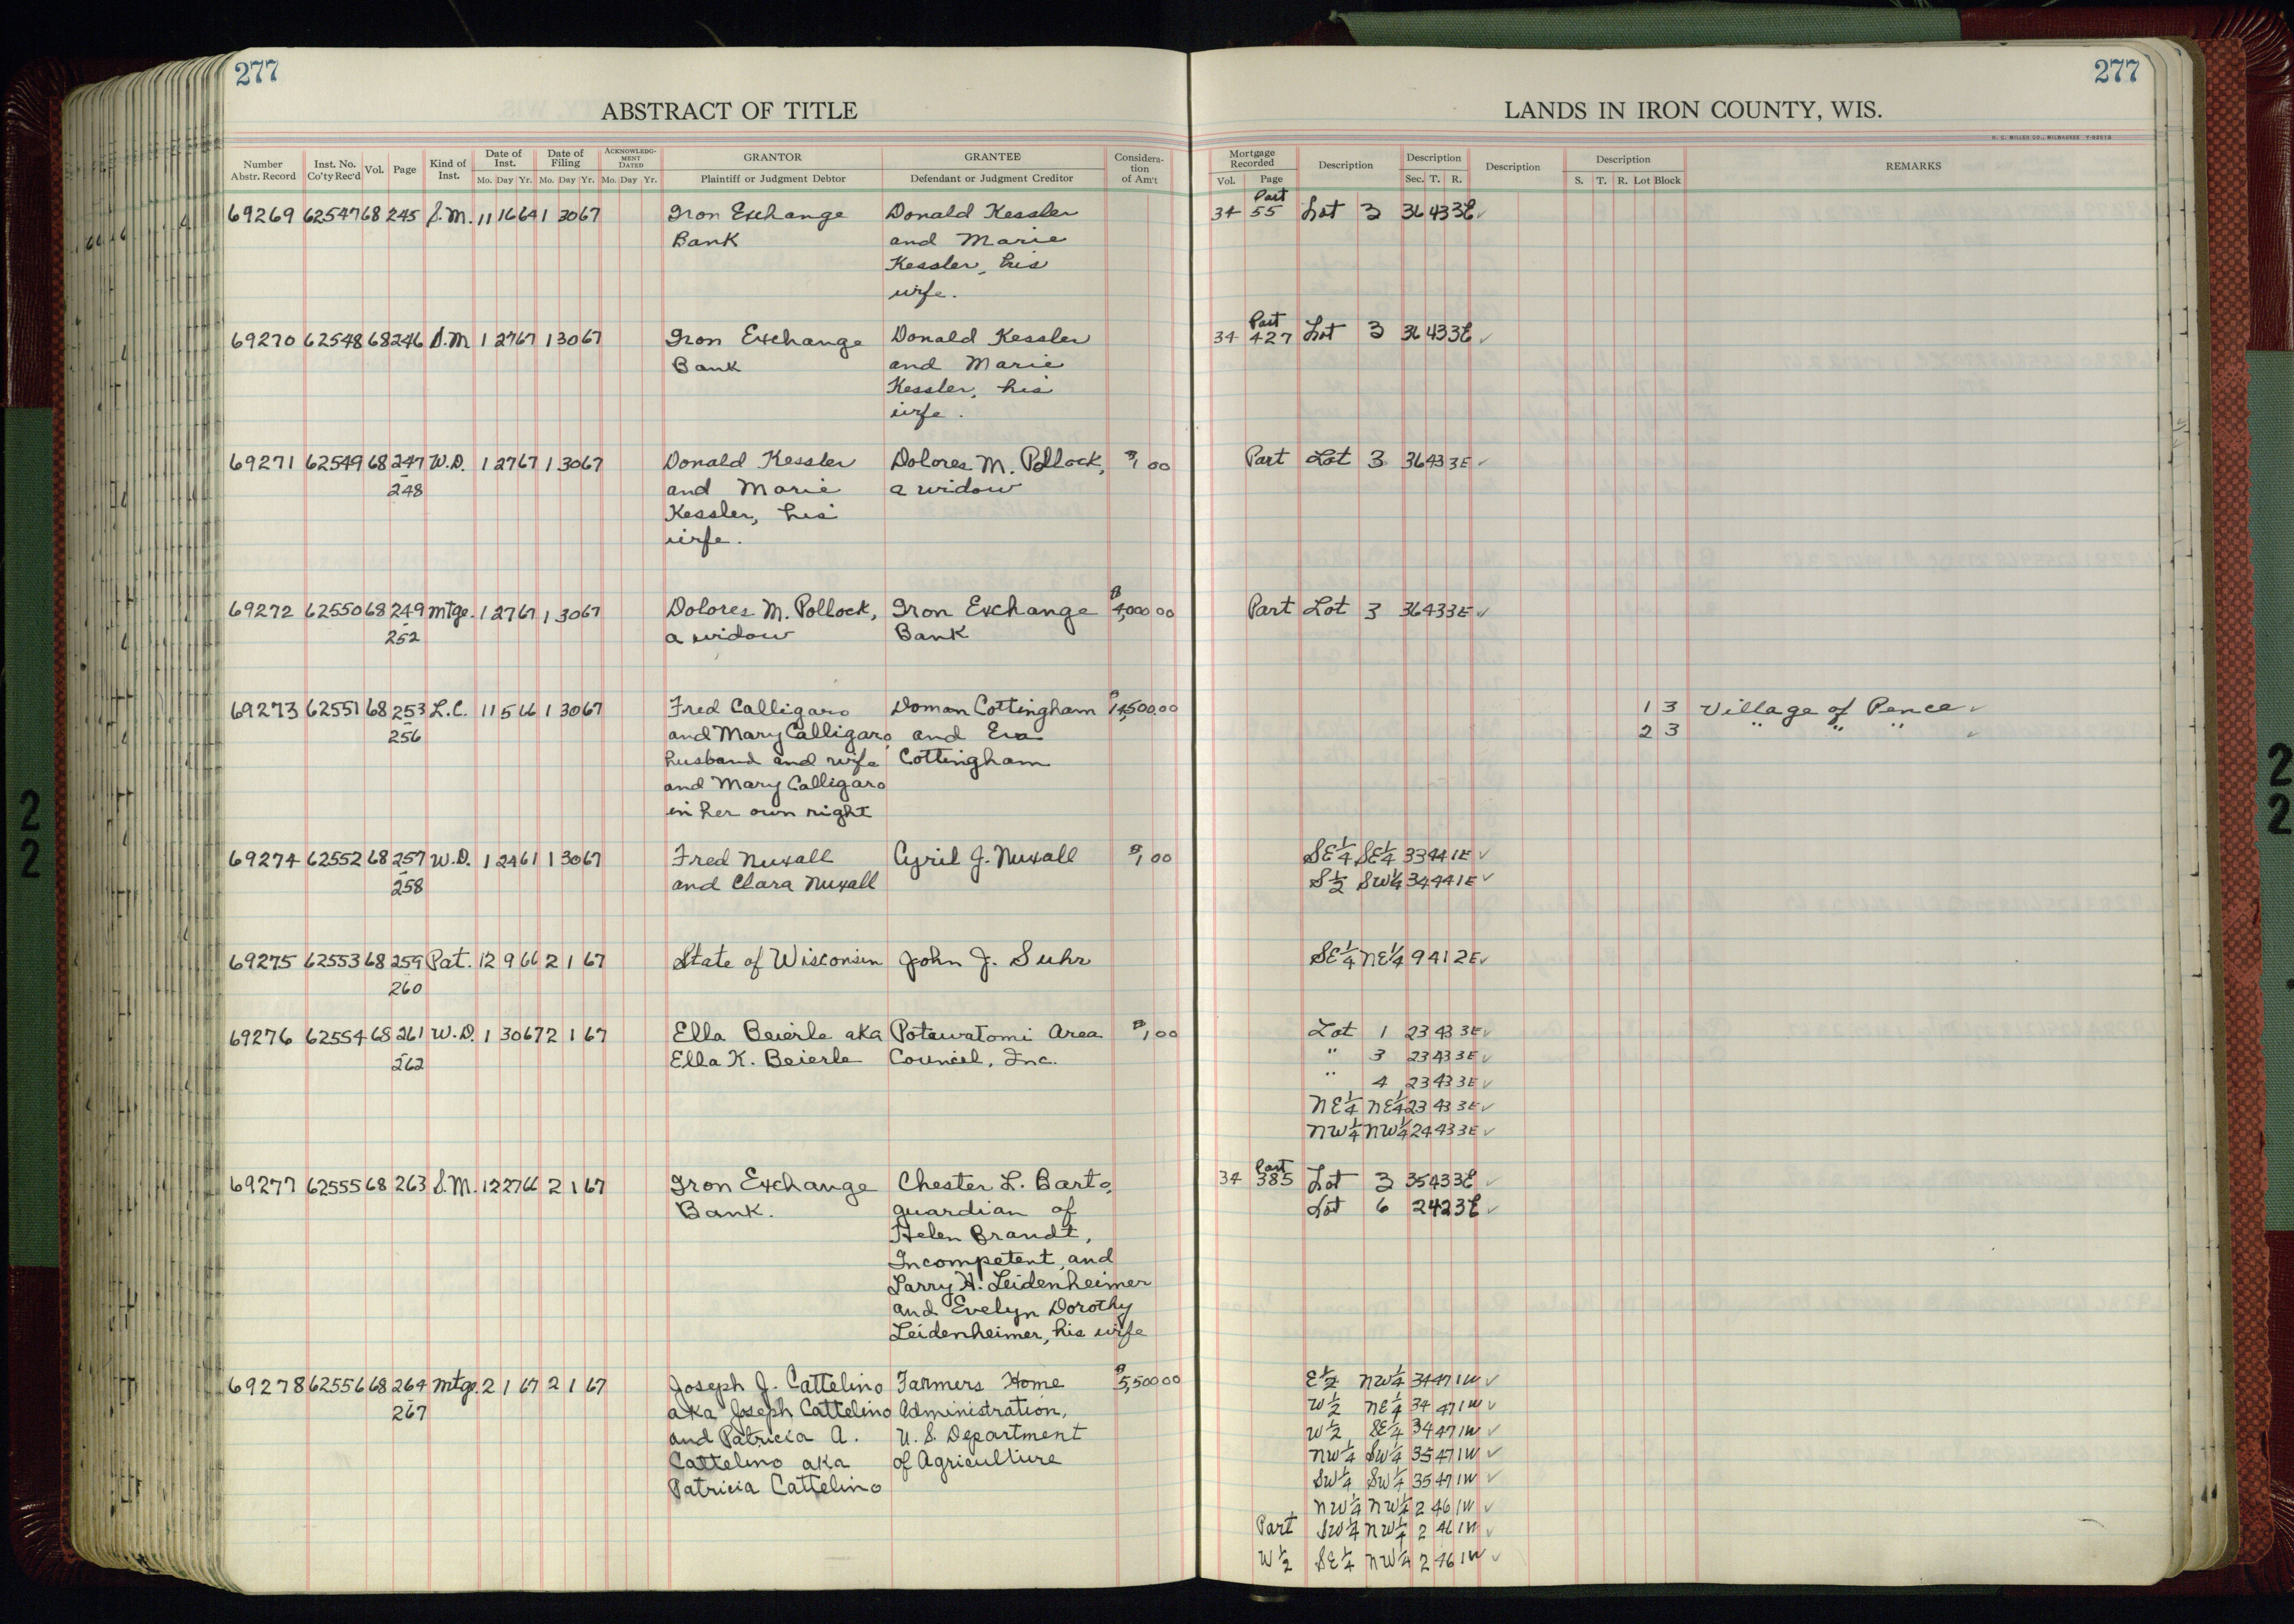 277
277
ABSTRACT OF TITLE
LANDS IN IRON COUNTY, WIS.
H. C. MILLER CO., MILWAUKEE
Number Abstr. Record | Inst. No. Co'ty Rec'd | Vol. | Page | Kind of Inst. | Date of Inst. Mo. Day Yr. | Date of Filing Mo. Day Yr. | ACKNOWLEDGMENT DATED Mo. Day Yr. | GRANTOR Plaintiff or Judgment Debtor | GRANTEE Defendant or Judgment Creditor | Consideration of Am't
Mortgage Recorded Vol. Page | Description | Description Sec. T. R. | Description | Description S. T. R. Lot Block | REMARKS
69269 62547 68 245 S.M. 11 16 64 1 30 67 Iron Exchange Donald Kessler 34 Part 55 Lot 3 36 43 3E ✓
Bank and Marie
Kessler, his
wife.
69270 62548 68 246 S.M. 1 27 67 1 30 67 Iron Exchange Donald Kessler 34 Part 427 Lot 3 36 43 3E ✓
Bank and Marie
Kessler, his
wife.
69271 62549 68 247 W.D. 1 27 67 1 30 67 Donald Kessler Dolores M. Pollock, $1.00 Part Lot 3 36 43 3E ✓
- 248 and Marie a widow
Kessler, his
wife.
69272 62550 68 249 Mtge. 1 27 67 1 30 67 Dolores M. Pollock, Iron Exchange $4,000.00 Part Lot 3 36 43 3E ✓
- 252 a widow Bank
69273 62551 68 253 L.C. 11 5 66 1 30 67 Fred Calligaro Doman Cottingham $14,500.00 1 3 Village of Pence ✓
- 256 and Mary Calligaro, and Eva 2 3 " " " ✓
husband and wife Cottingham
and Mary Calligaro
in her own right
69274 62552 68 257 W.D. 1 24 61 1 30 67 Fred Nuxall Cyril J. Nuxall $1.00 SE¼ SE¼ 33 44 1E ✓
- 258 and Clara Nuxall S½ SW¼ 34 44 1E ✓
69275 62553 68 259 Pat. 12 9 66 2 1 67 State of Wisconsin John J. Suhr SE¼ NE¼ 9 41 2E ✓
- 260
69276 62554 68 261 W.D. 1 30 67 2 1 67 Ella Beierle aka Potawatomi Area $1.00 Lot 1 23 43 3E ✓
- 262 Ella K. Beierle Council, Inc. " 3 23 43 3E ✓
" 4 23 43 3E ✓
NE¼ NE¼ 23 43 3E ✓
NW¼ NW¼ 24 43 3E ✓
69277 62555 68 263 S.M. 12 27 66 2 1 67 Iron Exchange Chester L. Barto, 34 Part 385 Lot 3 35 43 3E ✓
Bank. guardian of Lot 6 2 42 3E ✓
Helen Brandt,
Incompetent, and
Larry H. Leidenheimer
and Evelyn Dorothy
Leidenheimer, his wife
69278 62556 68 264 Mtge. 2 1 67 2 1 67 Joseph J. Cattelino Farmers Home $5,500.00 E½ NW¼ 34 47 1W ✓
- 267 aka Joseph Cattelino Administration, W½ NE¼ 34 47 1W ✓
and Patricia A. U. S. Department W½ SE¼ 34 47 1W ✓
Cattelino aka of Agriculture NW¼ SW¼ 35 47 1W ✓
Patricia Cattelino SW¼ SW¼ 35 47 1W ✓
NW¼ NW¼ 2 46 1W ✓
Part SW¼ NW¼ 2 46 1W ✓
W½ SE¼ NW¼ 2 46 1W ✓
22
22